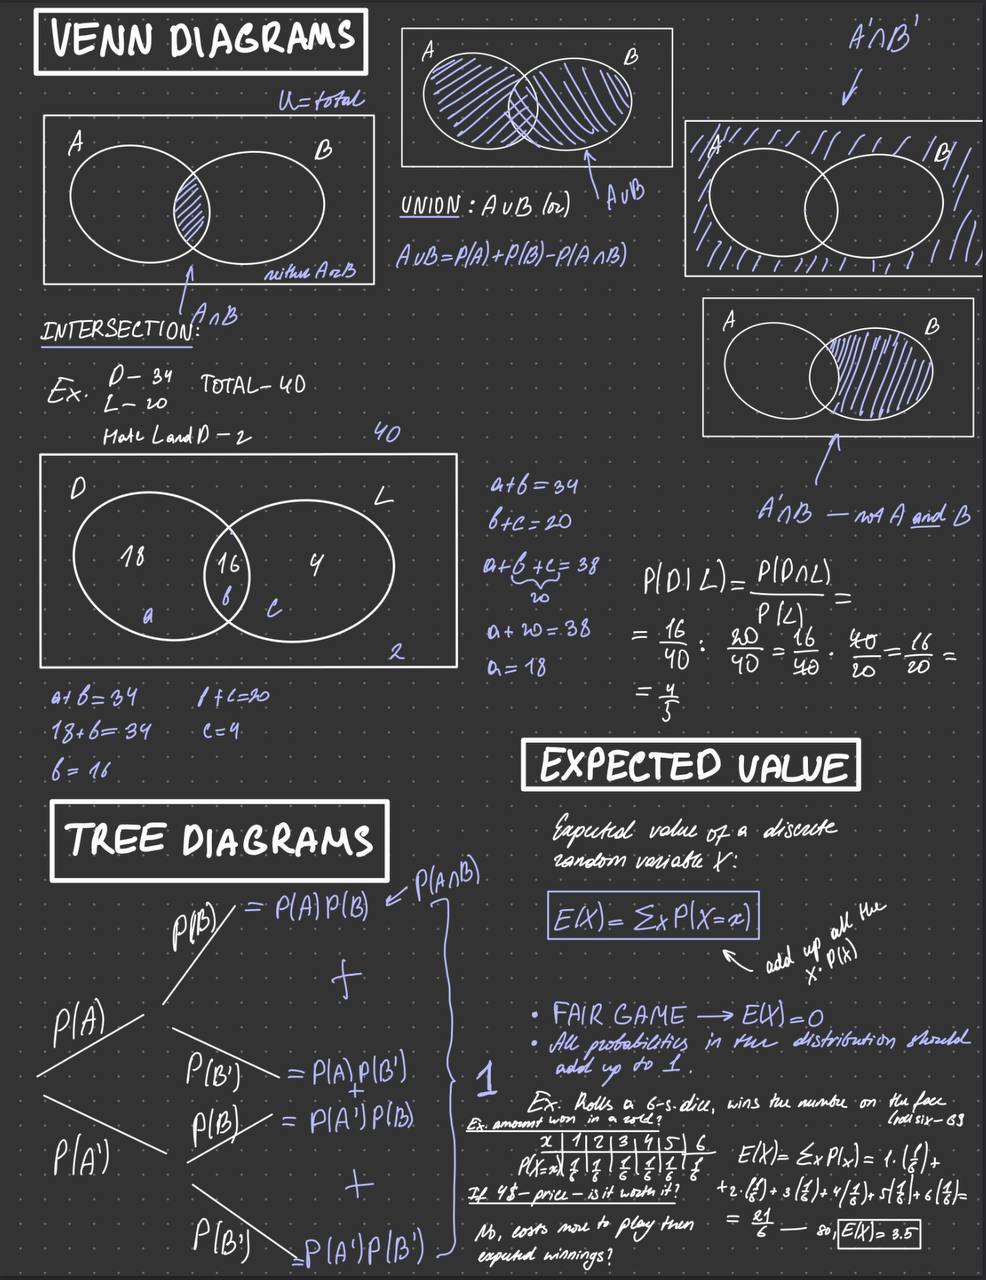 VENN DIAGRAMS
U = total
A
B
neither A or B
A∩B
INTERSECTION:
A
B
A∪B
UNION : A∪B (or)
A∪B = P(A) + P(B) - P(A∩B)
A'∩B'
A
B
A
B
A'∩B — not A and B
Ex. D - 34 TOTAL - 40
L - 20
Hate L and D - 2
40
D
L
18
16
4
a
b
c
2
a+b = 34
b+c = 20
a+b+c = 38
20
a + 20 = 38
a = 18
a+b = 34
18+b = 34
b = 16
b+c=20
c=4
P(D|L) = P(D∩L)/P(L) =
= 16/40 : 20/40 = 16/40 · 40/20 = 16/20 =
= 4/5
TREE DIAGRAMS
P(A)
P(A')
P(B)
= P(A) P(B)
P(A∩B)
+
P(B')
= P(A) P(B')
+
P(B)
= P(A') P(B)
+
P(B')
= P(A') P(B')
1
EXPECTED VALUE
Expected value of a discrete
random variable X:
E(X) = Σx P(X=x)
add up all the
x · P(x)
• FAIR GAME → E(X) = 0
• All probabilities in the distribution should
add up to 1.
Ex. Rolls a 6-s. dice, wins the number on the face
(roll six - 6$
Ex. amount won in a roll?
x | 1 | 2 | 3 | 4 | 5 | 6
P(X=x) | 1/6 | 1/6 | 1/6 | 1/6 | 1/6 | 1/6
E(X) = Σx P(x) = 1·(1/6) +
+2·(1/6) + 3(1/6) + 4(1/6) + 5(1/6) + 6(1/6) =
= 21/6 — so, E(X) = 3.5
If 4$ - price - is it worth it?
No, costs more to play then
expected winnings?